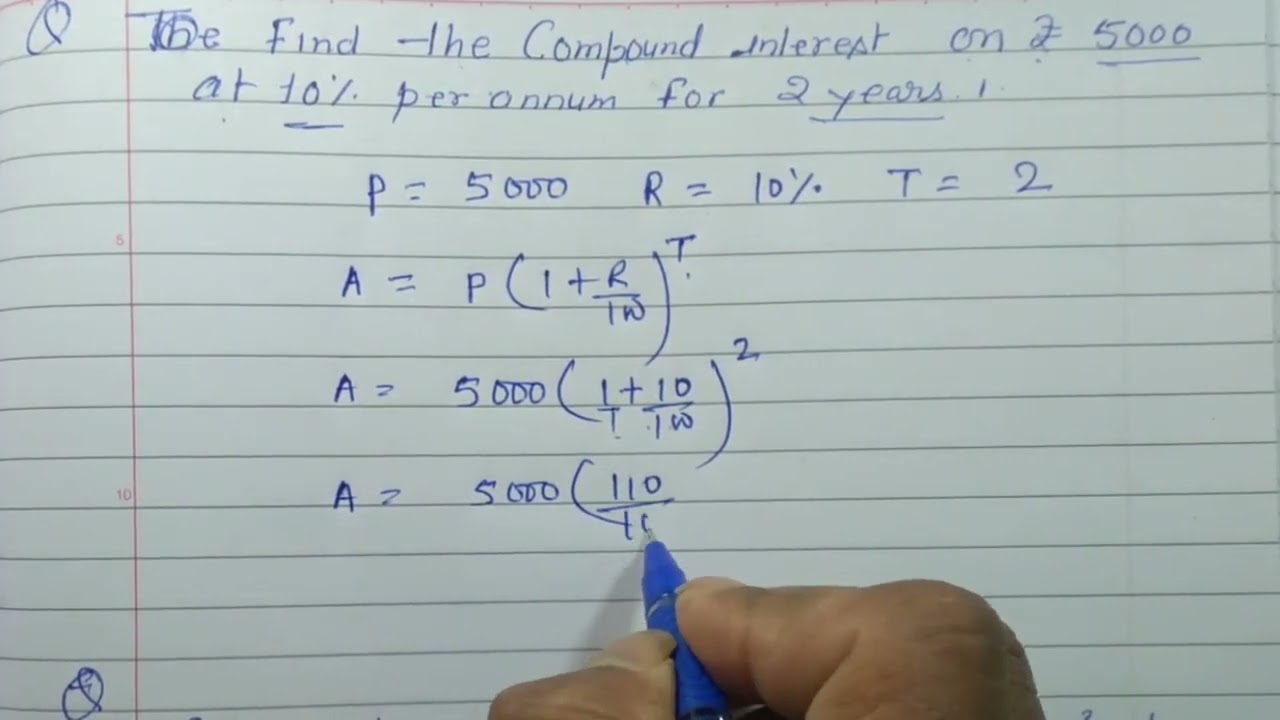 Q Find the Compound interest on ₹ 5000
at 10% per annum for 2 years.
P = 5000 R = 10% T = 2
5
A = P(1+R/100)^T
A = 5000(1/1+10/100)^2
A = 5000(110/10
10
Q